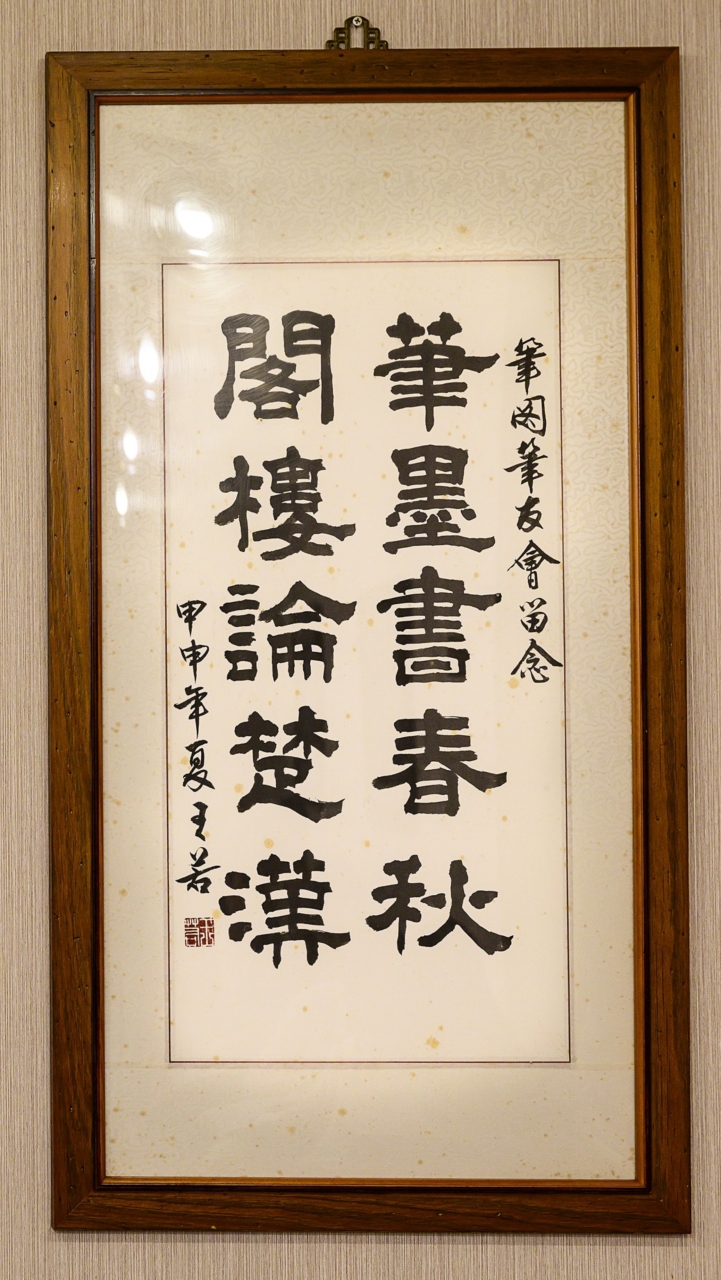 筆阁筆友會留念
筆墨書春秋
閣樓論楚漢
甲申年夏王若